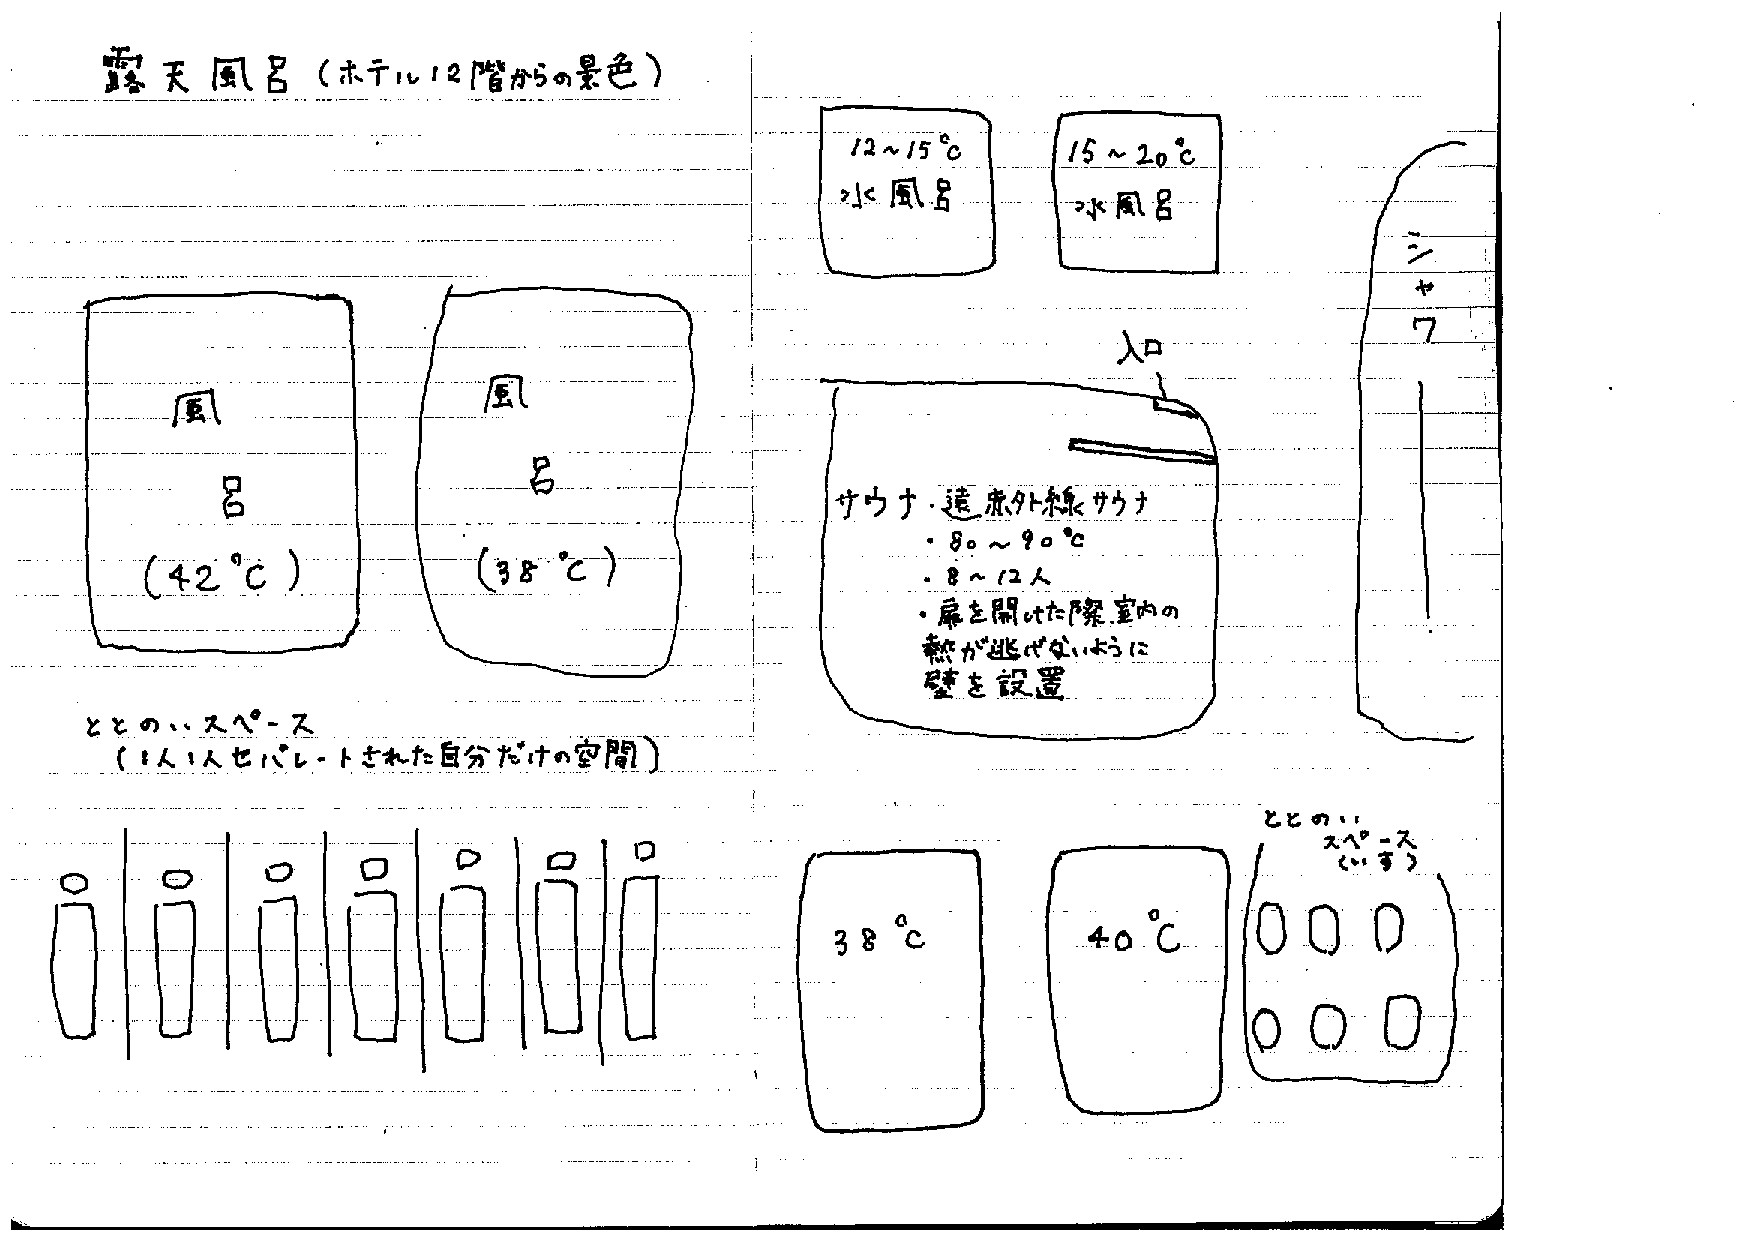 露天風呂(ホテル12階からの景色)
風
呂
(42℃)
風
呂
(38℃)
ととのいスペース
(1人1人セパレートされた自分だけの空間)
12~15℃
水風呂
15~20℃
水風呂
シャワー
入口
サウナ・遠赤外線サウナ
・80~90℃
・8~12人
・扉を開けた際室内の
熱が逃げないように
壁を設置
38℃
40℃
ととのい
スペース
(いす)